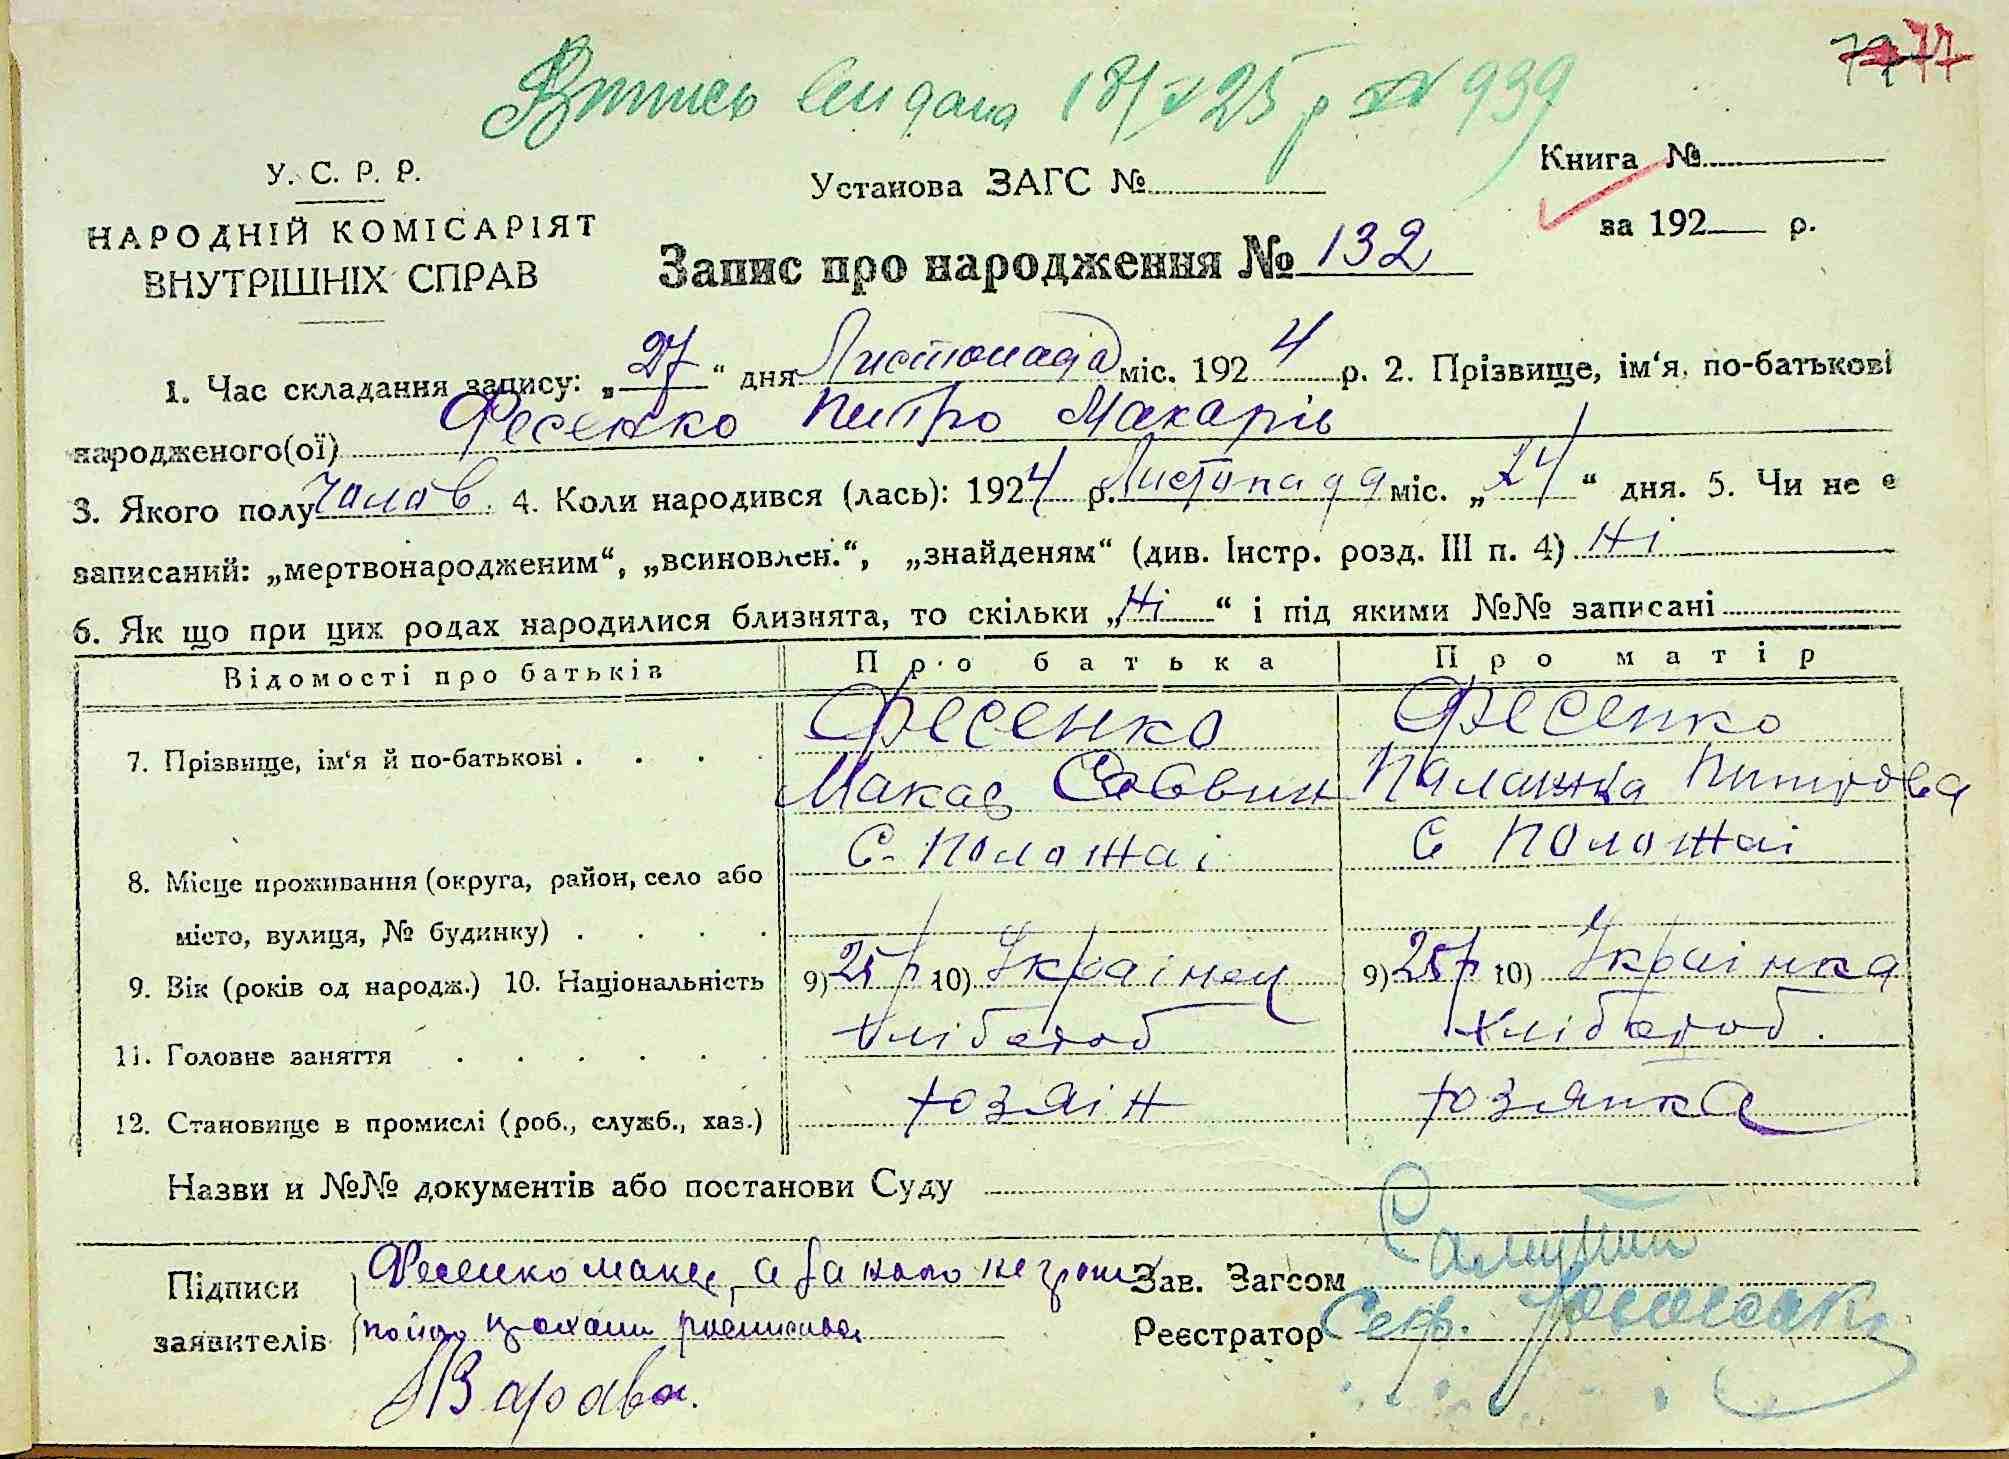 77
Випись видана 18/V 25 р № 939
У. С. Р. Р.
НАРОДНІЙ КОМІСАРІЯТ
ВНУТРІШНІХ СПРАВ
Установа ЗАГС №
Книга №
за 192 р.
Запис про народження № 132
1. Час складання запису: „27“ дня Листопада міс. 1924 р. 2. Прізвище, ім‘я, по-батькові
народженого(ої) Фесенко Питро Макарів
3. Якого полу чолов. 4. Коли народився (лась): 1924 р. Листопада міс. „24“ дня. 5. Чи не є
записаний: „мертвонародженим“, „всиновлен.“, „знайденям“ (див. Інстр. розд. III п. 4) Ні
6. Як що при цих родах народилися близнята, то скільки „Ні“ і під якими №№ записані
Відомості про батьків Про батька Про матір
7. Прізвище, ім‘я й по-батькові . . . . Фесенко Фесенко
Макар Саввин Палажка Питрова
8. Місце проживання (округа, район, село або С. Положаі С Положаі
місто, вулиця, № будинку) . . . .
9. Вік (років од народж.) 10. Національність 9) 25 р 10) Украінец 9) 25 р 10) Украінка
11. Головне заняття . . . . . . хлібороб хлібороб.
12. Становище в промислі (роб., служб., хаз.) хозяін хозянка
Назви и №№ документів або постанови Суду
Підписи Фесенко Макар, а за його не грам Зав. Загсом
заявителів росписався Реєстратор Секр.
Варава.